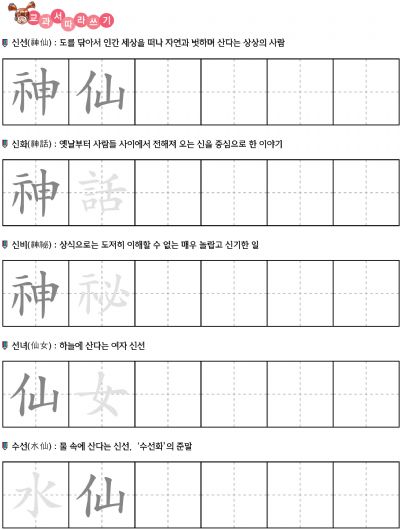 교과서 따라쓰기
신선(神仙) : 도를 닦아서 인간 세상을 떠나 자연과 벗하며 산다는 상상의 사람
神 仙
신화(神話) : 옛날부터 사람들 사이에서 전해져 오는 신을 중심으로 한 이야기
神 話
신비(神祕) : 상식으로는 도저히 이해할 수 없는 매우 놀랍고 신기한 일
神 祕
선녀(仙女) : 하늘에 산다는 여자 신선
仙 女
수선(水仙) : 물 속에 산다는 신선, ‘수선화’의 준말
水 仙